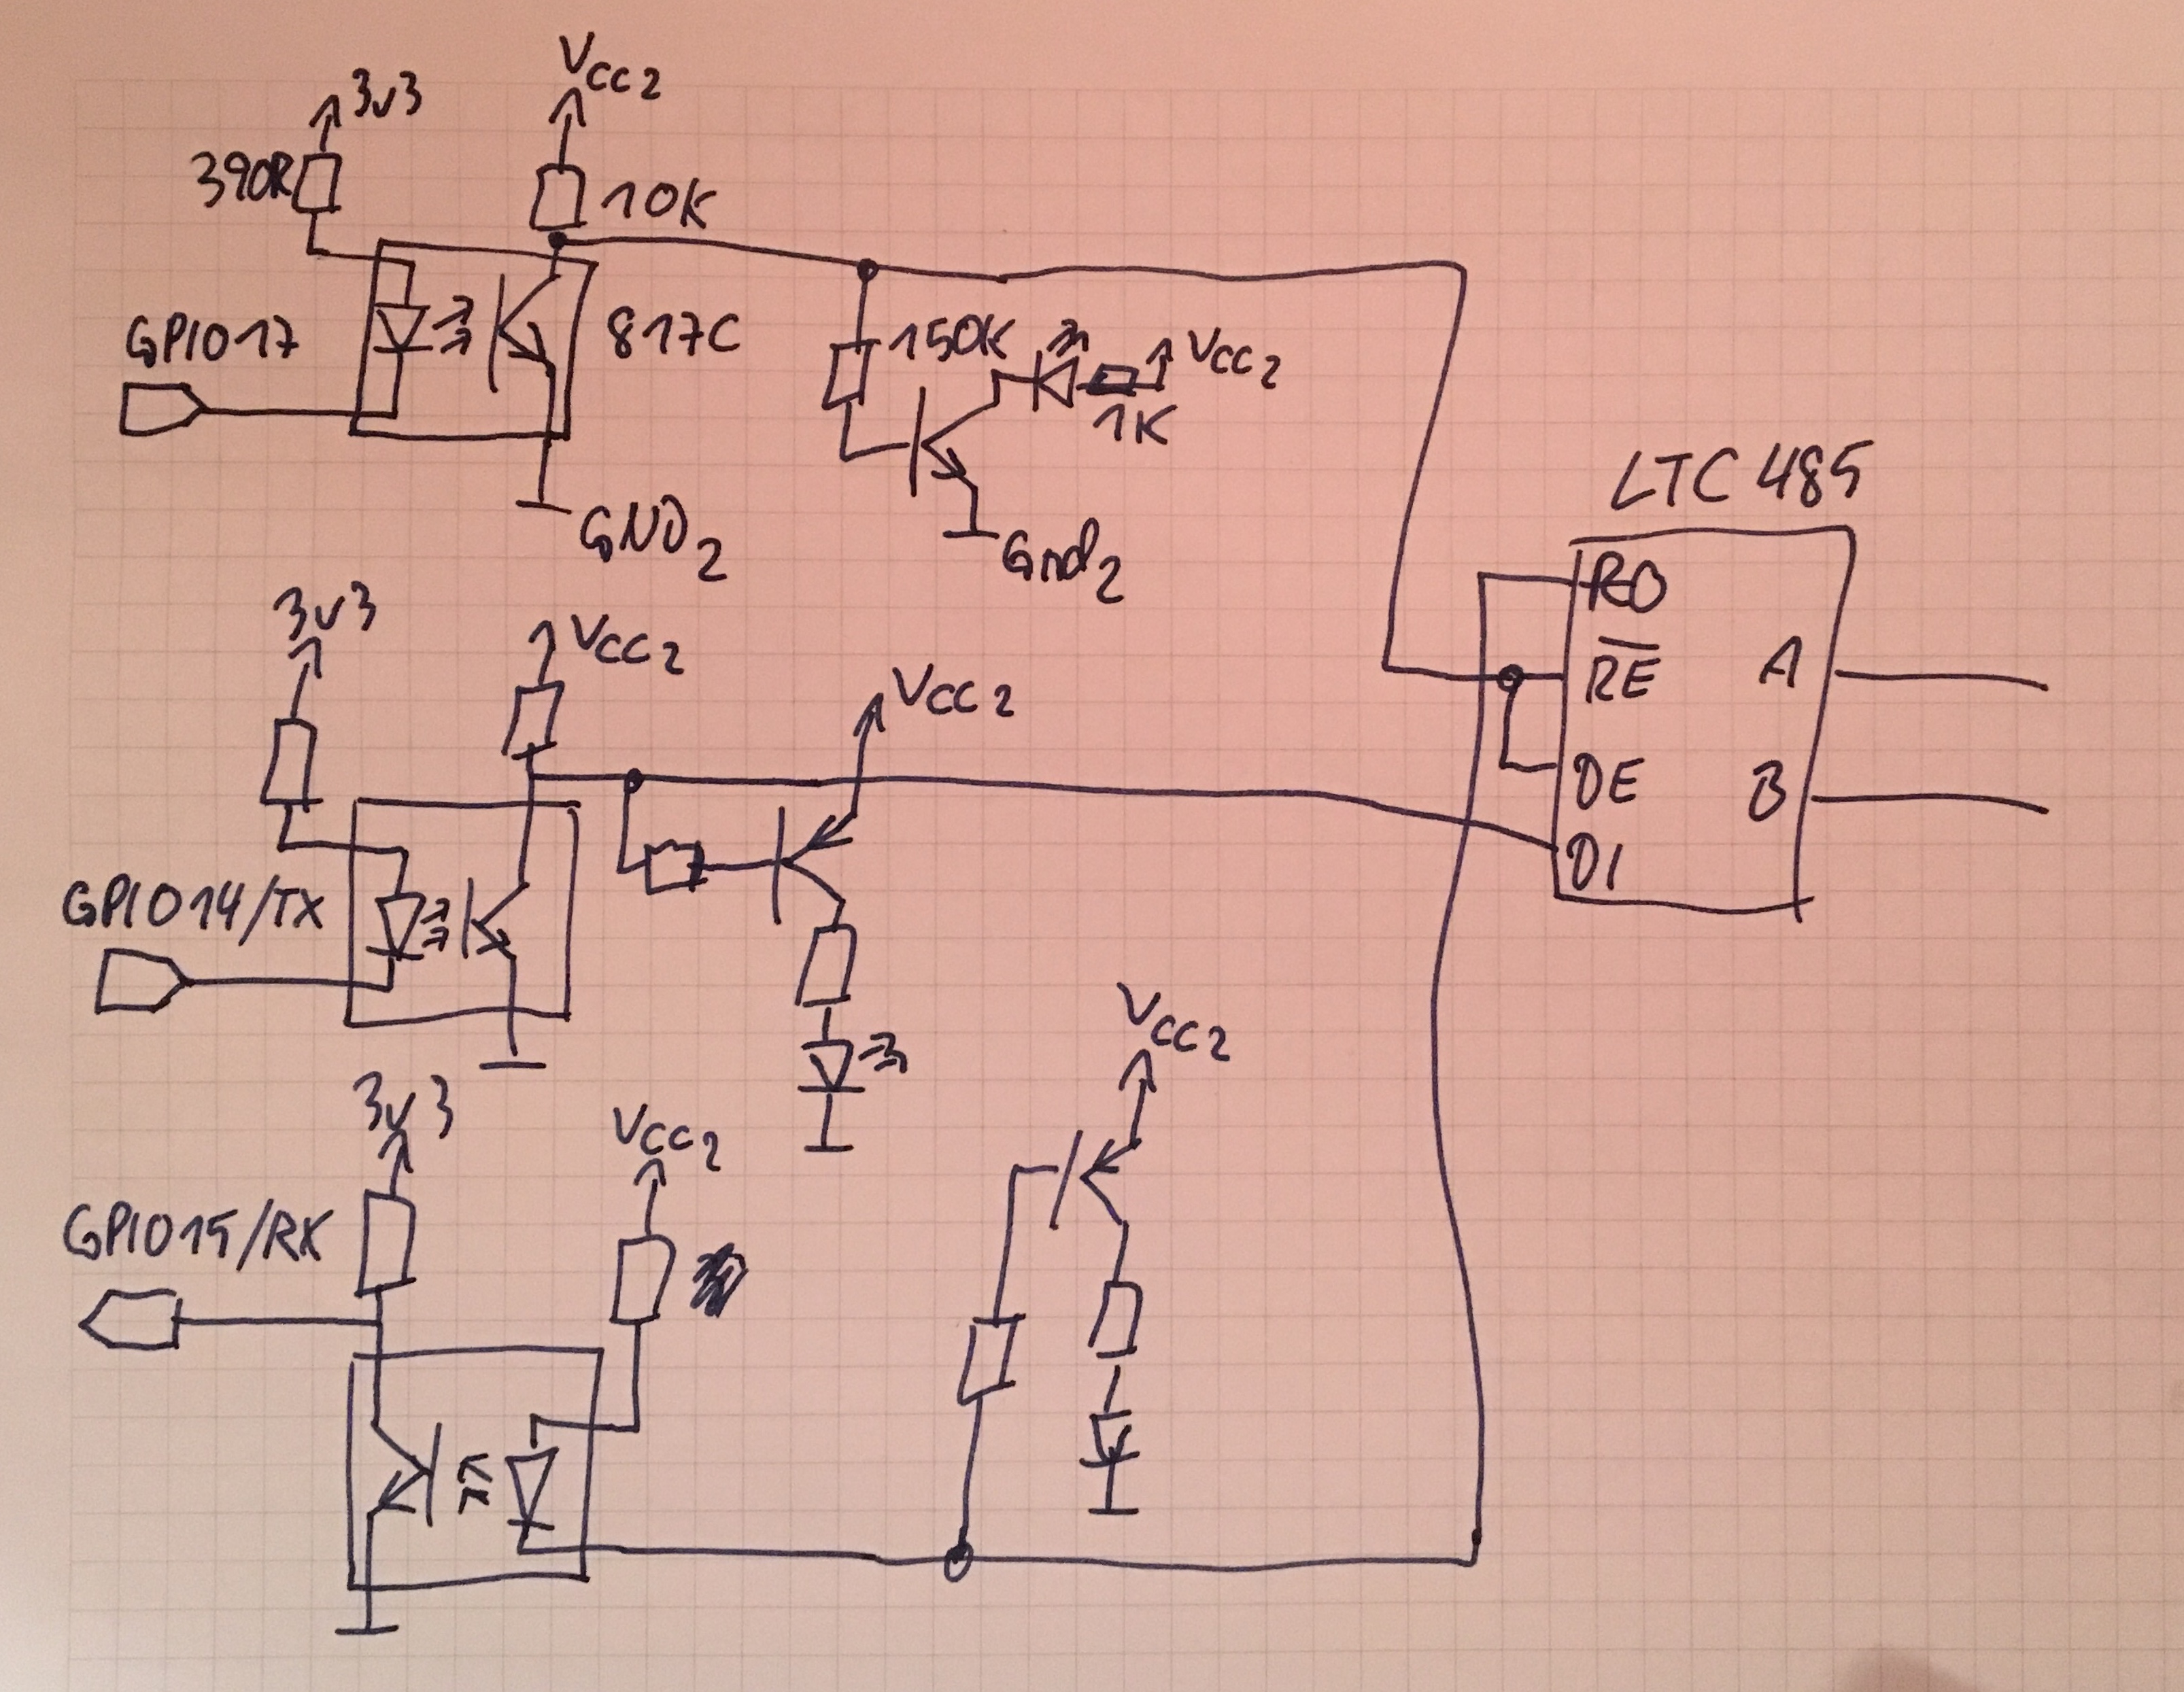 3v3
VCC2
390R
10K
GPIO17
817C
150K
VCC2
1K
GND2
Gnd2
LTC485
RO
RE
A
DE
B
DI
3v3
VCC2
VCC2
GPIO14/TX
VCC2
3v3
VCC2
GPIO15/RX